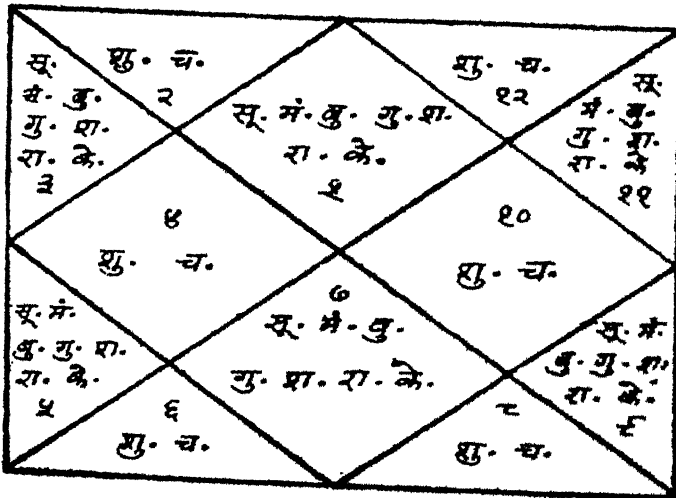 शु. च.
२
सू.
मं. बु.
गु. श.
रा. के.
३
सू. मं. बु. गु. श.
रा. के.
१
शु. च.
१२
सू.
मं. बु.
गु. श.
रा. के
११
४
शु. च.
१०
शु. च.
सू. मं.
बु. गु. श.
रा. के.
५
७
सू. मं. बु.
गु. श. रा. के.
सू. मं.
बु. गु. श.
रा. के.
९
६
शु. च.
८
शु. च.